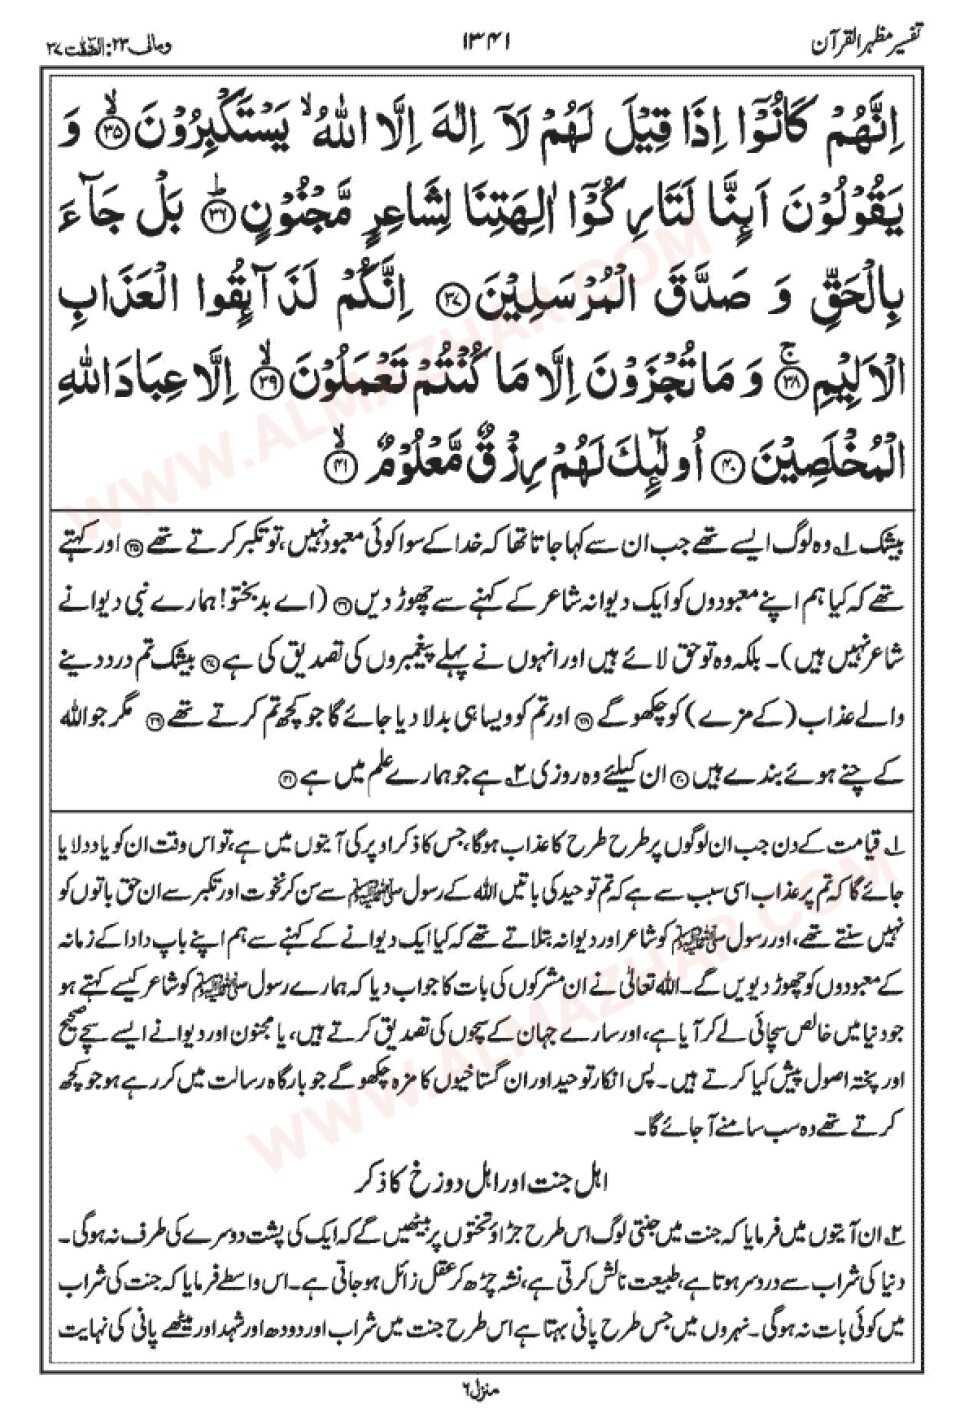 تفسیر مظہر القرآن ۱۳۴۱ ومالی ۲۳: الصّٰفّٰت ۳۷
اِنَّهُمْ كَانُوْۤا اِذَا قِيْلَ لَهُمْ لَاۤ اِلٰهَ اِلَّا اللّٰهُ ۙ يَسْتَكْبِرُوْنَ ۙ۝۳۵ وَ
يَقُوْلُوْنَ اَىِٕنَّا لَتَارِكُوْۤا اٰلِهَتِنَا لِشَاعِرٍ مَّجْنُوْنٍ ؕ۝۳۶ بَلْ جَآءَ
بِالْحَقِّ وَ صَدَّقَ الْمُرْسَلِيْنَ ۝۳۷ اِنَّكُمْ لَذَآىِٕقُوا الْعَذَابِ
الْاَلِيْمِ ۚ۝۳۸ وَ مَا تُجْزَوْنَ اِلَّا مَا كُنْتُمْ تَعْمَلُوْنَ ۙ۝۳۹ اِلَّا عِبَادَ اللّٰهِ
الْمُخْلَصِيْنَ ۝۴۰ اُولٰٓىِٕكَ لَهُمْ رِزْقٌ مَّعْلُوْمٌ ۙ۝۴۱
بیشک ۱؎ وہ لوگ ایسے تھے جب ان سے کہا جاتا تھا کہ خدا کے سوا کوئی معبود نہیں، تو تکبر کرتے تھے ۝۳۵ اور کہتے
تھے کہ کیا ہم اپنے معبودوں کو ایک دیوانہ شاعر کے کہنے سے چھوڑ دیں ۝۳۶ (اے بدبختو! ہمارے نبی دیوانے
شاعر نہیں ہیں)۔ بلکہ وہ تو حق لائے ہیں اور انہوں نے پہلے پیغمبروں کی تصدیق کی ہے ۝۳۷ بیشک تم درد دینے
والے عذاب (کے مزے) کو چکھو گے ۝۳۸ اور تم کو ویسا ہی بدلا دیا جائے گا جو کچھ تم کرتے تھے ۝۳۹ مگر جو اللہ
کے چنے ہوئے بندے ہیں ۝۴۰ ان کیلئے وہ روزی ۲؎ ہے جو ہمارے علم میں ہے ۝۴۱
۱؎ قیامت کے دن جب ان لوگوں پر طرح طرح کا عذاب ہوگا، جس کا ذکر اوپر کی آیتوں میں ہے، تو اس وقت ان کو یاد دلایا
جائے گا کہ تم پر عذاب اسی سبب سے ہے کہ تم توحید کی باتیں اللہ کے رسول ﷺ سے سن کر نخوت اور تکبر سے ان حق باتوں کو
نہیں سنتے تھے، اور رسول ﷺ کو شاعر اور دیوانہ بتلاتے تھے کہ کیا ایک دیوانے کے کہنے سے ہم اپنے باپ دادا کے زمانہ
کے معبودوں کو چھوڑ دیویں گے۔ اللہ تعالیٰ نے ان مشرکوں کی بات کا جواب دیا کہ ہمارے رسول ﷺ کو شاعر کیسے کہتے ہو
جو دنیا میں خالص سچائی لے کر آیا ہے، اور سارے جہان کے سچوں کی تصدیق کرتے ہیں، یا مجنون اور دیوانے ایسے سچے صحیح
اور پختہ اصول پیش کیا کرتے ہیں۔ پس انکار توحید اور ان گستاخیوں کا مزہ چکھو گے جو بارگاہ رسالت میں کر رہے ہو جو کچھ
کرتے تھے وہ سب سامنے آ جائے گا۔
اہل جنت اور اہل دوزخ کا ذکر
۲؎ ان آیتوں میں فرمایا کہ جنت میں جنتی لوگ اس طرح جڑاؤ تختوں پر بیٹھیں گے کہ ایک کی پشت دوسرے کی طرف نہ ہوگی۔
دنیا کی شراب سے درد سر ہوتا ہے، طبیعت نالش کرتی ہے، نشہ چڑھ کر عقل زائل ہو جاتی ہے۔ اس واسطے فرمایا کہ جنت کی شراب
میں کوئی بات نہ ہوگی۔ نہروں میں جس طرح پانی بہتا ہے اس طرح جنت میں شراب اور دودھ اور شہد اور میٹھے پانی کی نہایت
منزل ۶
WWW.ALMAZHAR.COM
WWW.ALMAZHAR.COM